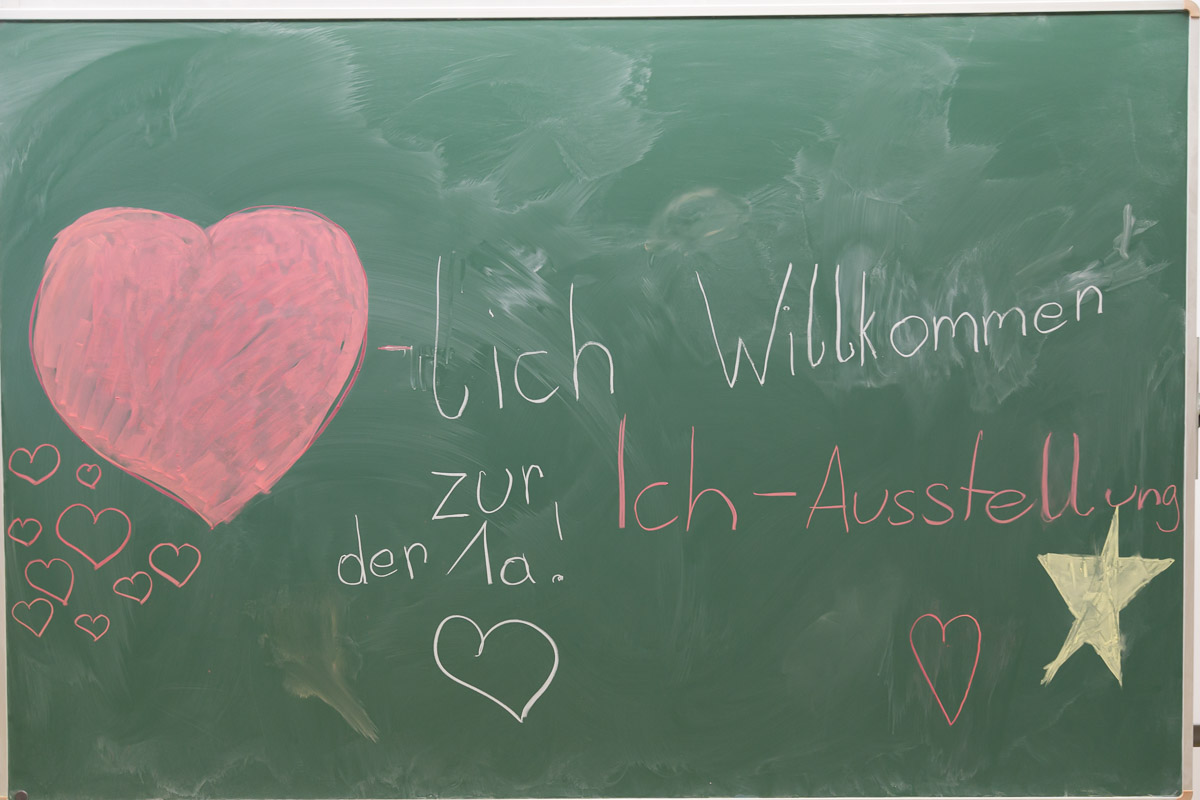 -lich Willkommen
zur Ich-Ausstellung
der 1a!